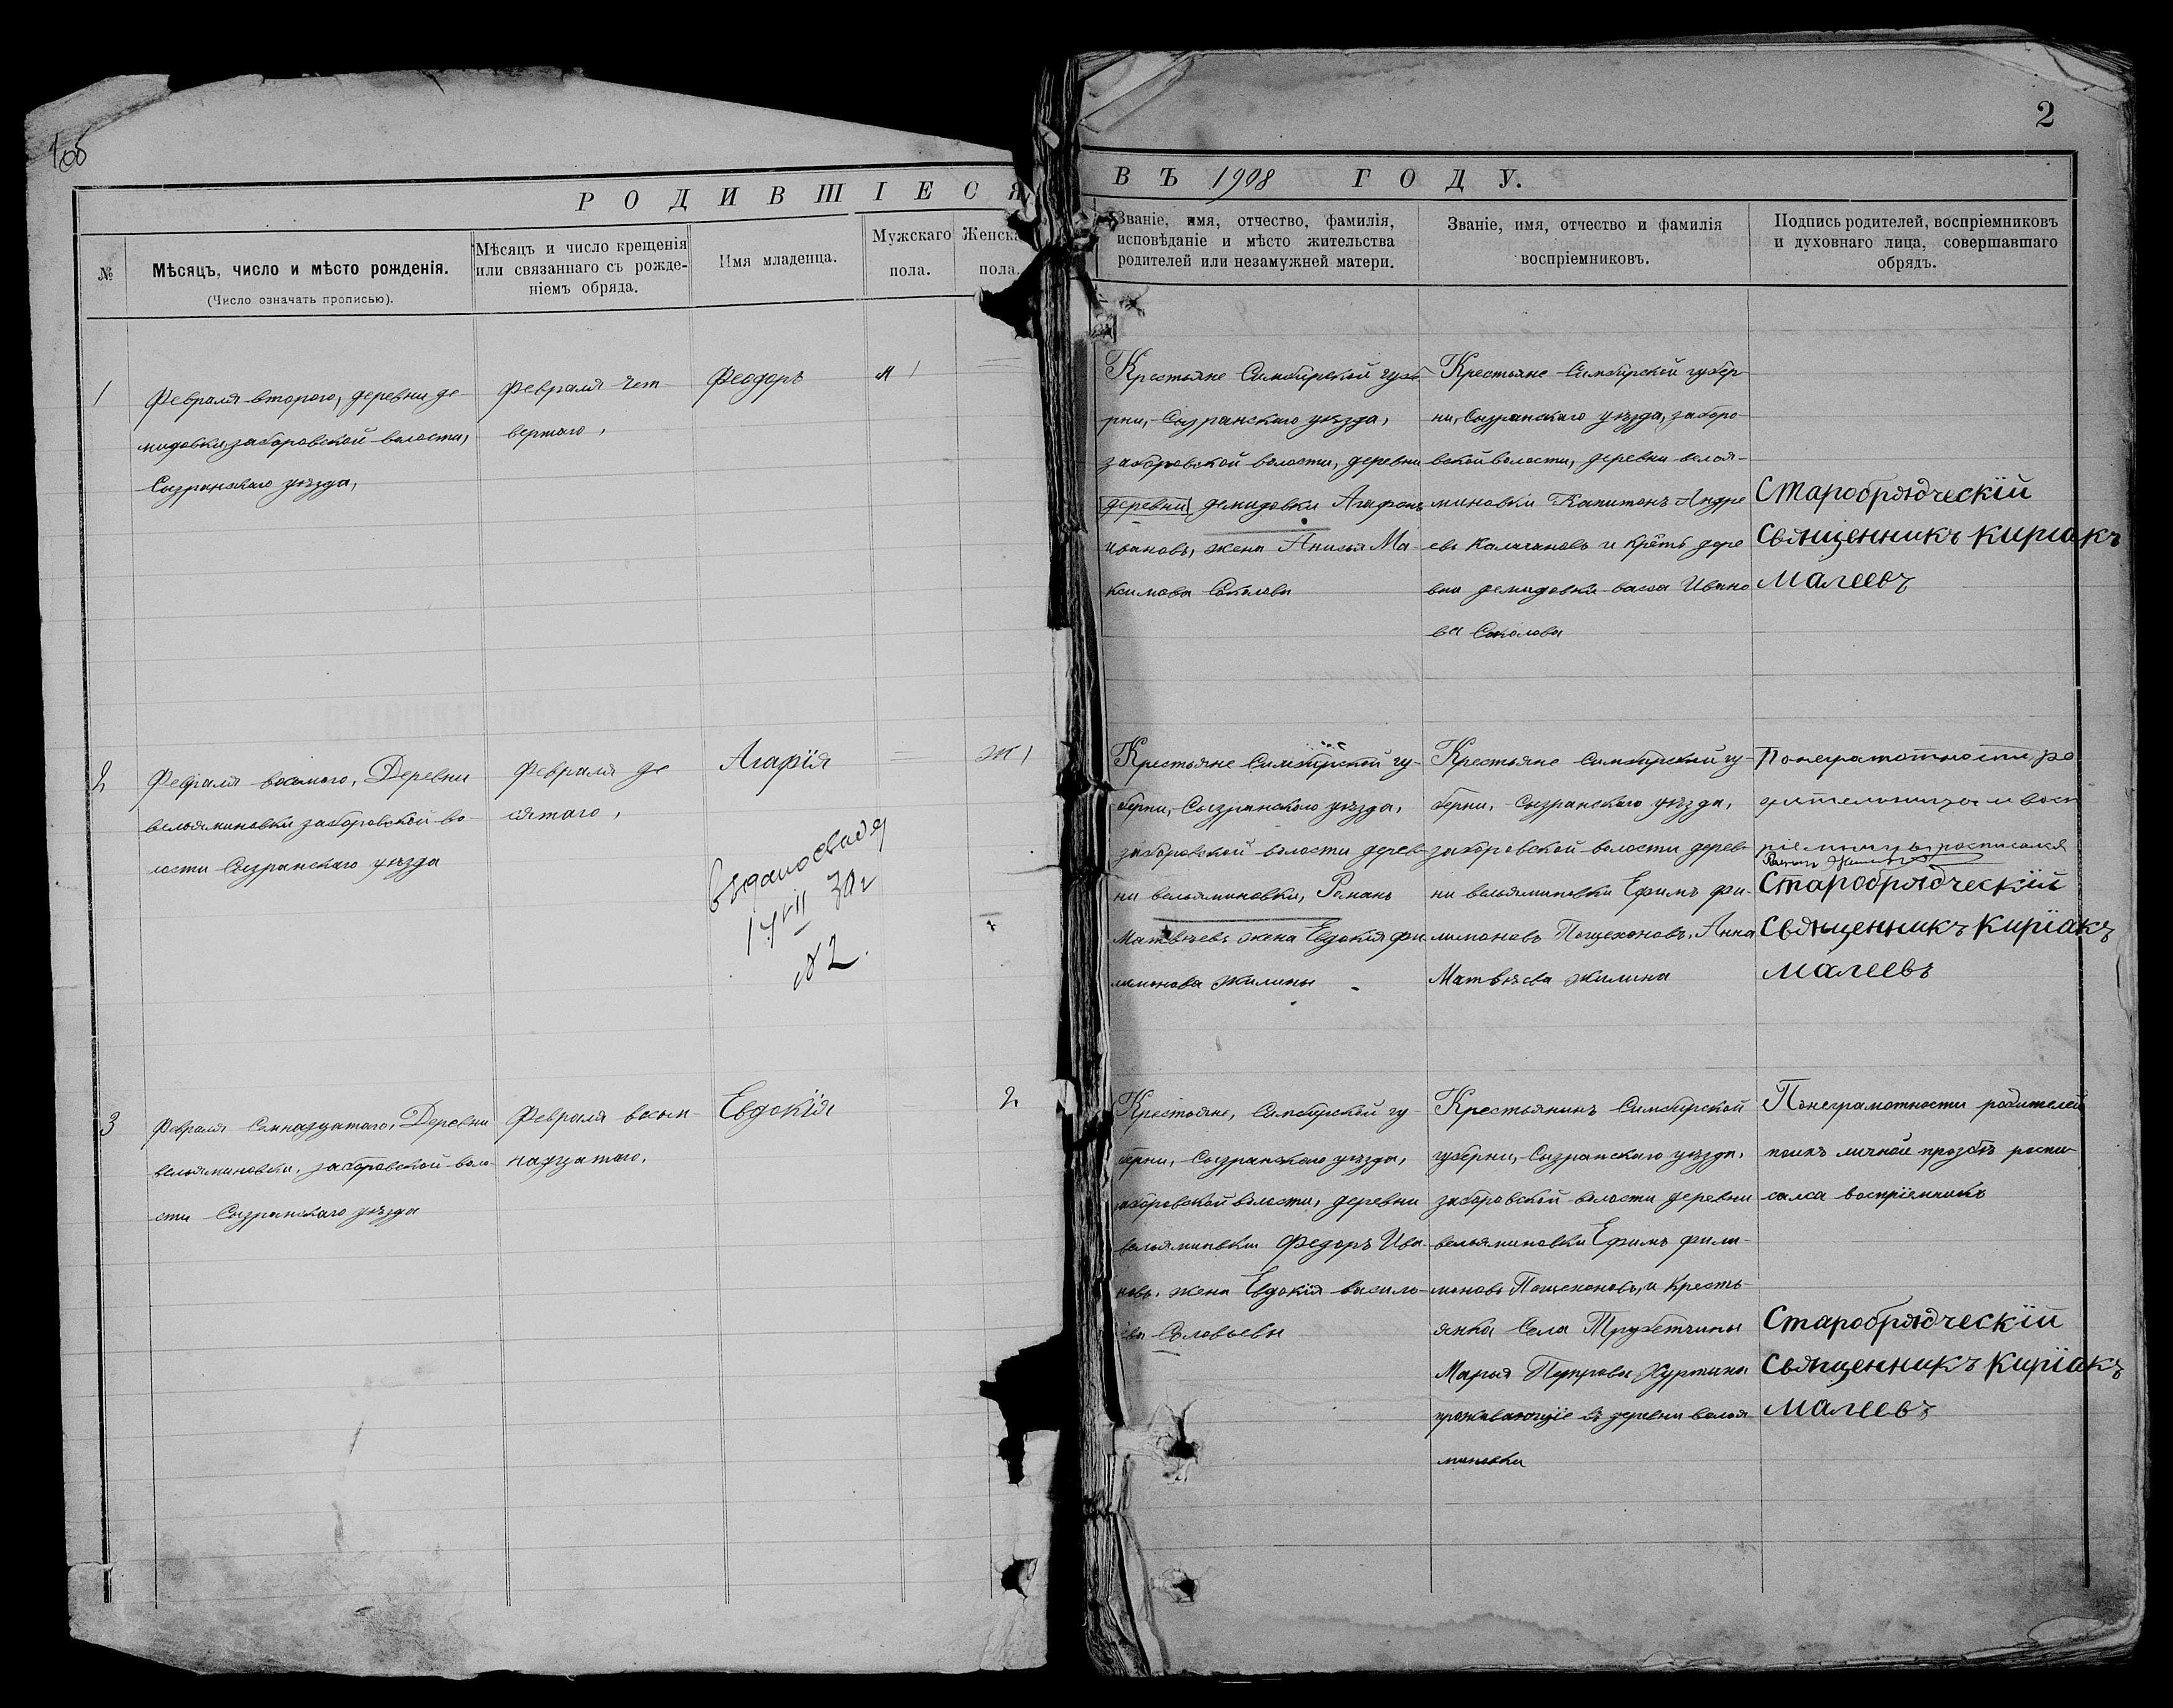 1об
2
РОДИВШІЕСЯ ВЪ 1908 ГОДУ.
№
Мѣсяцъ, число и мѣсто рожденія.
(Число означать прописью).
Мѣсяцъ и число крещенія
или связаннаго съ рожде-
ніемъ обряда.
Имя младенца.
Мужскаго
пола.
Женска
пола.
Званіе, имя, отчество, фамилія,
исповѣданіе и мѣсто жительства
родителей или незамужней матери.
Званіе, имя, отчество и фамилія
воспріемниковъ.
Подпись родителей, воспріемниковъ
и духовнаго лица, совершавшаго
обрядъ.
1
Февраля второго, деревни де-
мидовки, заборовской волости,
Сызранскаго уѣзда,
Февраля чет-
вертаго,
Феодоръ
М 1
Крестьяне Симбирской губе
рни, Сызранскаго уѣзда,
заборовской волости, деревни
деревни демидовки Агафонъ
ивановъ, жена Анисья Ма-
ксимова Соколовы
Крестьяне Симбирской губер
ни, Сызранскаго уѣзда, заборо
вской волости, деревни велья-
миновки Капитонъ Андре
евъ Калачановъ и дере
вни демидовки васса Ивано
ва Соколова
Старобрядческій
Священникъ Киріакъ
Малеевъ
2
Февраля восьмого, Деревни
вельяминовки заборовской во-
лости Сызранскаго уѣзда
Февраля де
сятаго,
Агафія
Ж 1
выдано свид
17 VII 30г
№2.
Крестьяне Симбирской гу-
берни, Сызранскаго уѣзда,
заборовской волости дерев-
ни вельяминовки, Романъ
Матвѣевъ жена Евдокія фи-
лимонова Жилины
Крестьяне Симбирской гу-
берни, Сызранскаго уѣзда,
заборовской волости дерев-
ни вельяминовки Ефимъ фи-
лимоновъ Пощехоновъ, Анна
Матвѣева Жилина
Понеграмотности ро
дительницы и восп
ріемницы росписался
Старобрядческій
Священникъ Киріакъ
Малеевъ
3
Февраля Семнадцатаго, Деревни
вельяминовки, заборовской воло-
сти Сызранскаго уѣзда
Февраля восьм-
надцатаго,
Евдокія
2
Крестьяне, Симбирской гу-
берни, Сызранскаго уѣзда,
заборовской волости, деревни
вельяминвки Федоръ Ива-
новъ, жена Евдокія василь-
ева Соловьевы
Крестьянинъ Симбирской
губерни, Сызранскаго уѣзда,
заборовской волости деревни
вельяминовки Ефимъ фили-
моновъ Пощехоновъ, и Кресть-
янка Села Трубетчины
Марья Петрова Куртина
проживающіе въ деревни велья
миновки
Понеграмотности родителей
поихъ личной прозбѣ роспи-
салса воспріемникъ
Старобрядческій
Священникъ Киріакъ
Малеевъ